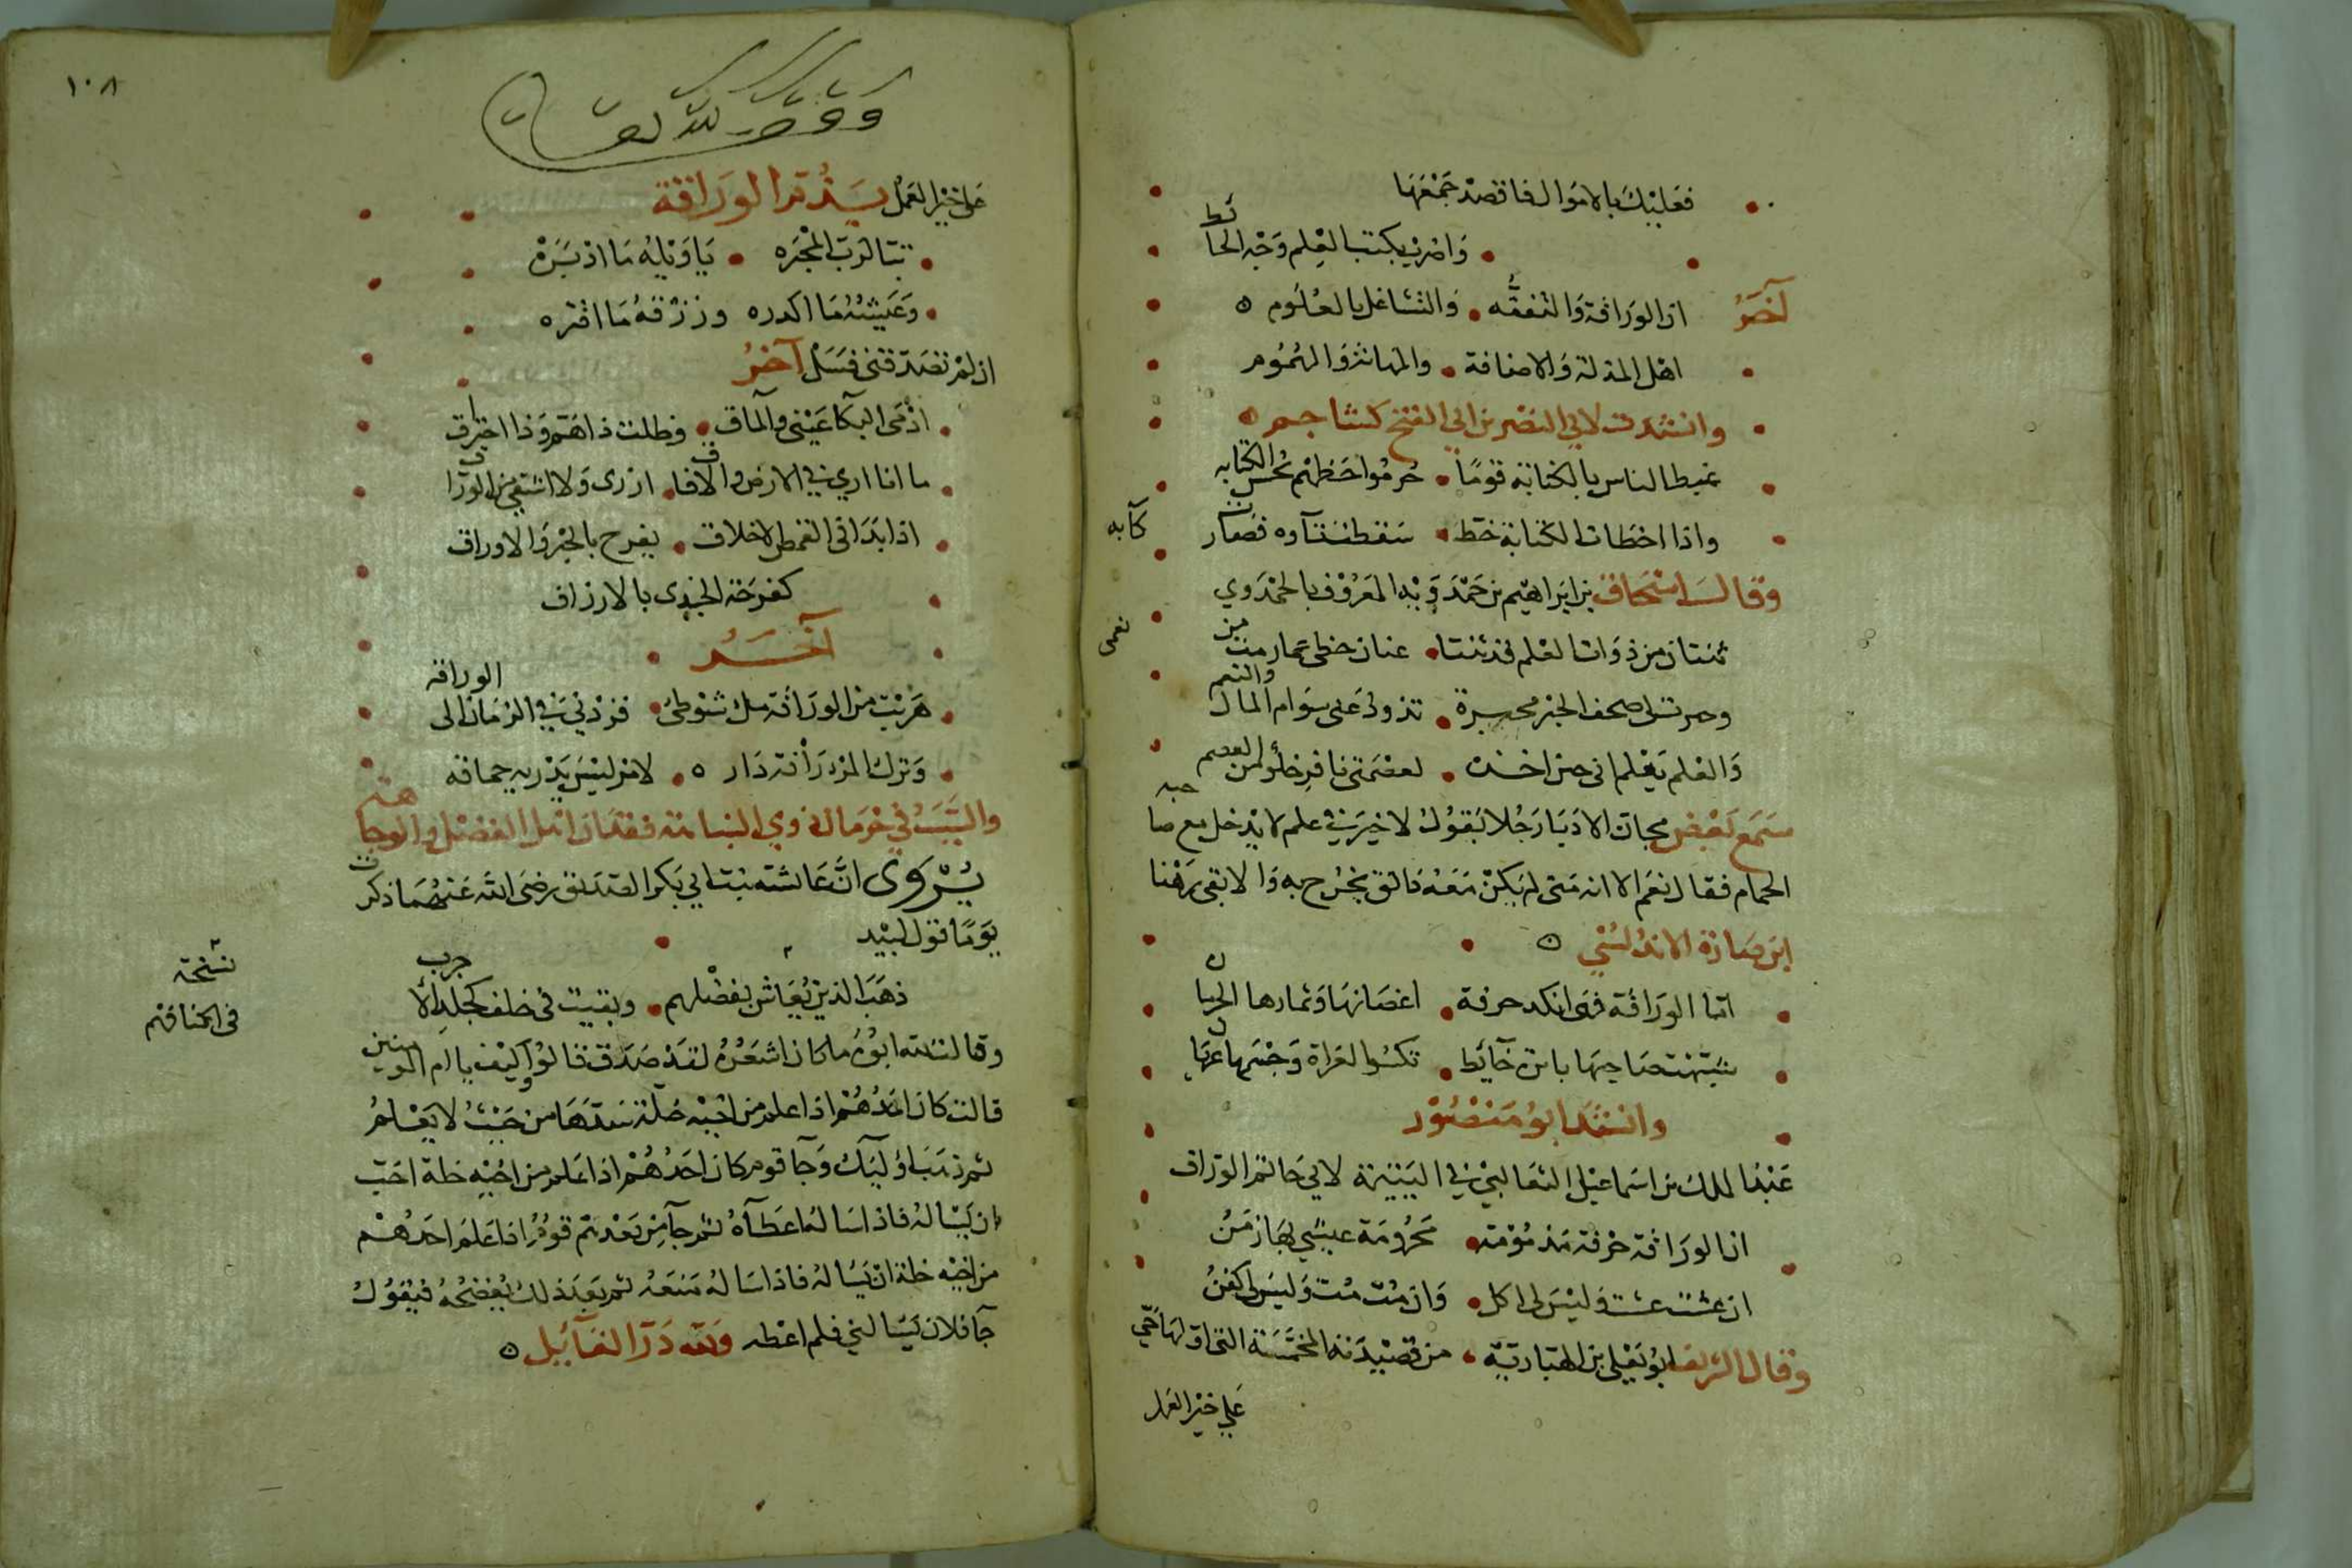 فعليك بالاموال فاقصد جمعها
واضرب بكتب العلم وجه الحائط
آخر ان الوراقة والتفقه والتشاغل بالعلوم
اهل المذلة والاضافة والمهانة والهموم
وانشدت لابي النصر بن ابي الفتح كشاجم
غبط الناس بالكتابة قوما حرموا حظهم بحسن الكتابه
واذا اخطات الكتابة خط سقطت تاوه فصارت كآبه
وقال اسحاق بن ابراهيم بن حمدويه المعروف بالحمدوي
ثنتان من ذوات العلم قد ثنتا عنان خطى عمار من نعمى
صحف الحبر محبرة تذود على سوام المال والنعم
والعلم يعلم انى حين اخذت لعصمتى نافر خلو من العصم
سمع بعض مجان الادبا رجلا يقول لا خير في علم لا يدخل مع صاحبه
الحمام فقال نعم الا انه متى لم يكن معه دانق يخرج به والا بقى رهنا
ابن صارة الاندلسي
اما الوراقة فهى انكد حرفة اغصانها وثمارها الحرمان
شبهت صاحبها بابرة خايط تكسوا العراة وجسمها عريان
وانشد ابو منصور
عبد الملك بن اسماعيل الثعالبي في اليتيمة لابي حاتم الوراق
ان الوراقة حرفة مذمومة محرومة عيشي بها زمن
ان عشت عشت وليس لى اكل وان مت مت وليس لى كفن
وقال الشريف ابو يعلى بن الهبارية من قصيدته المخمسة التى اولها حي
على خير العمل
١٠٨
وقف لله تعالى
على خير العمل بسند تر الوراقة
تبا لرب المحبره يا ويله ما اذبره
وعيشه ما اكدره ورزقه ما اقتره
ان لم تصدقنى فسل آخر
ادمى البكا عينى والمآق وظلت ذا هم وذا احتراق
ما انا ارى في الارض والآفاق ازرى ولا اشقى من الوراق
اذا بدا فى القمص الاخلاق يفرح بالحبر والاوراق
كفرحة الجندى بالارزاق
آخر
هربت من الوراقة ملء شوطى فردنى في الزمان الى الوراقه
وترك المرء رافة دار لامر ليس يدريه حماقه
والسبب في حرمان ذوي النباهة فقدان اهل الفضل والوجاهة
يروى ان عائشة بنت ابي بكر الصديق رضي الله عنهما ذكرت
يوما قول لبيد
ذهب الذين يعاش بفضلهم وبقيت فى خلف كجلد الاجرب
نسخة
فى اكنافهم
وقالت لله ابوه ما كان اشعره لقد صدق قالوا وكيف يا ام المومنين
قالت كان احدهم اذا علم من اخيه خلة سدها من حيث لا يعلم
ثم ذهب اوليك وجآ قوم كان احدهم اذا علم من اخيه خلة احب
ان يساله فاذا ساله اعطآه ثم جآ من بعدهم قوم اذا علم احدهم
من اخيه خلة ان يساله فاذا ساله منعه ثم بعد ذلك يفضحه فيقول
جآ فلان يسالني فلم اعطه ولله در القآيل